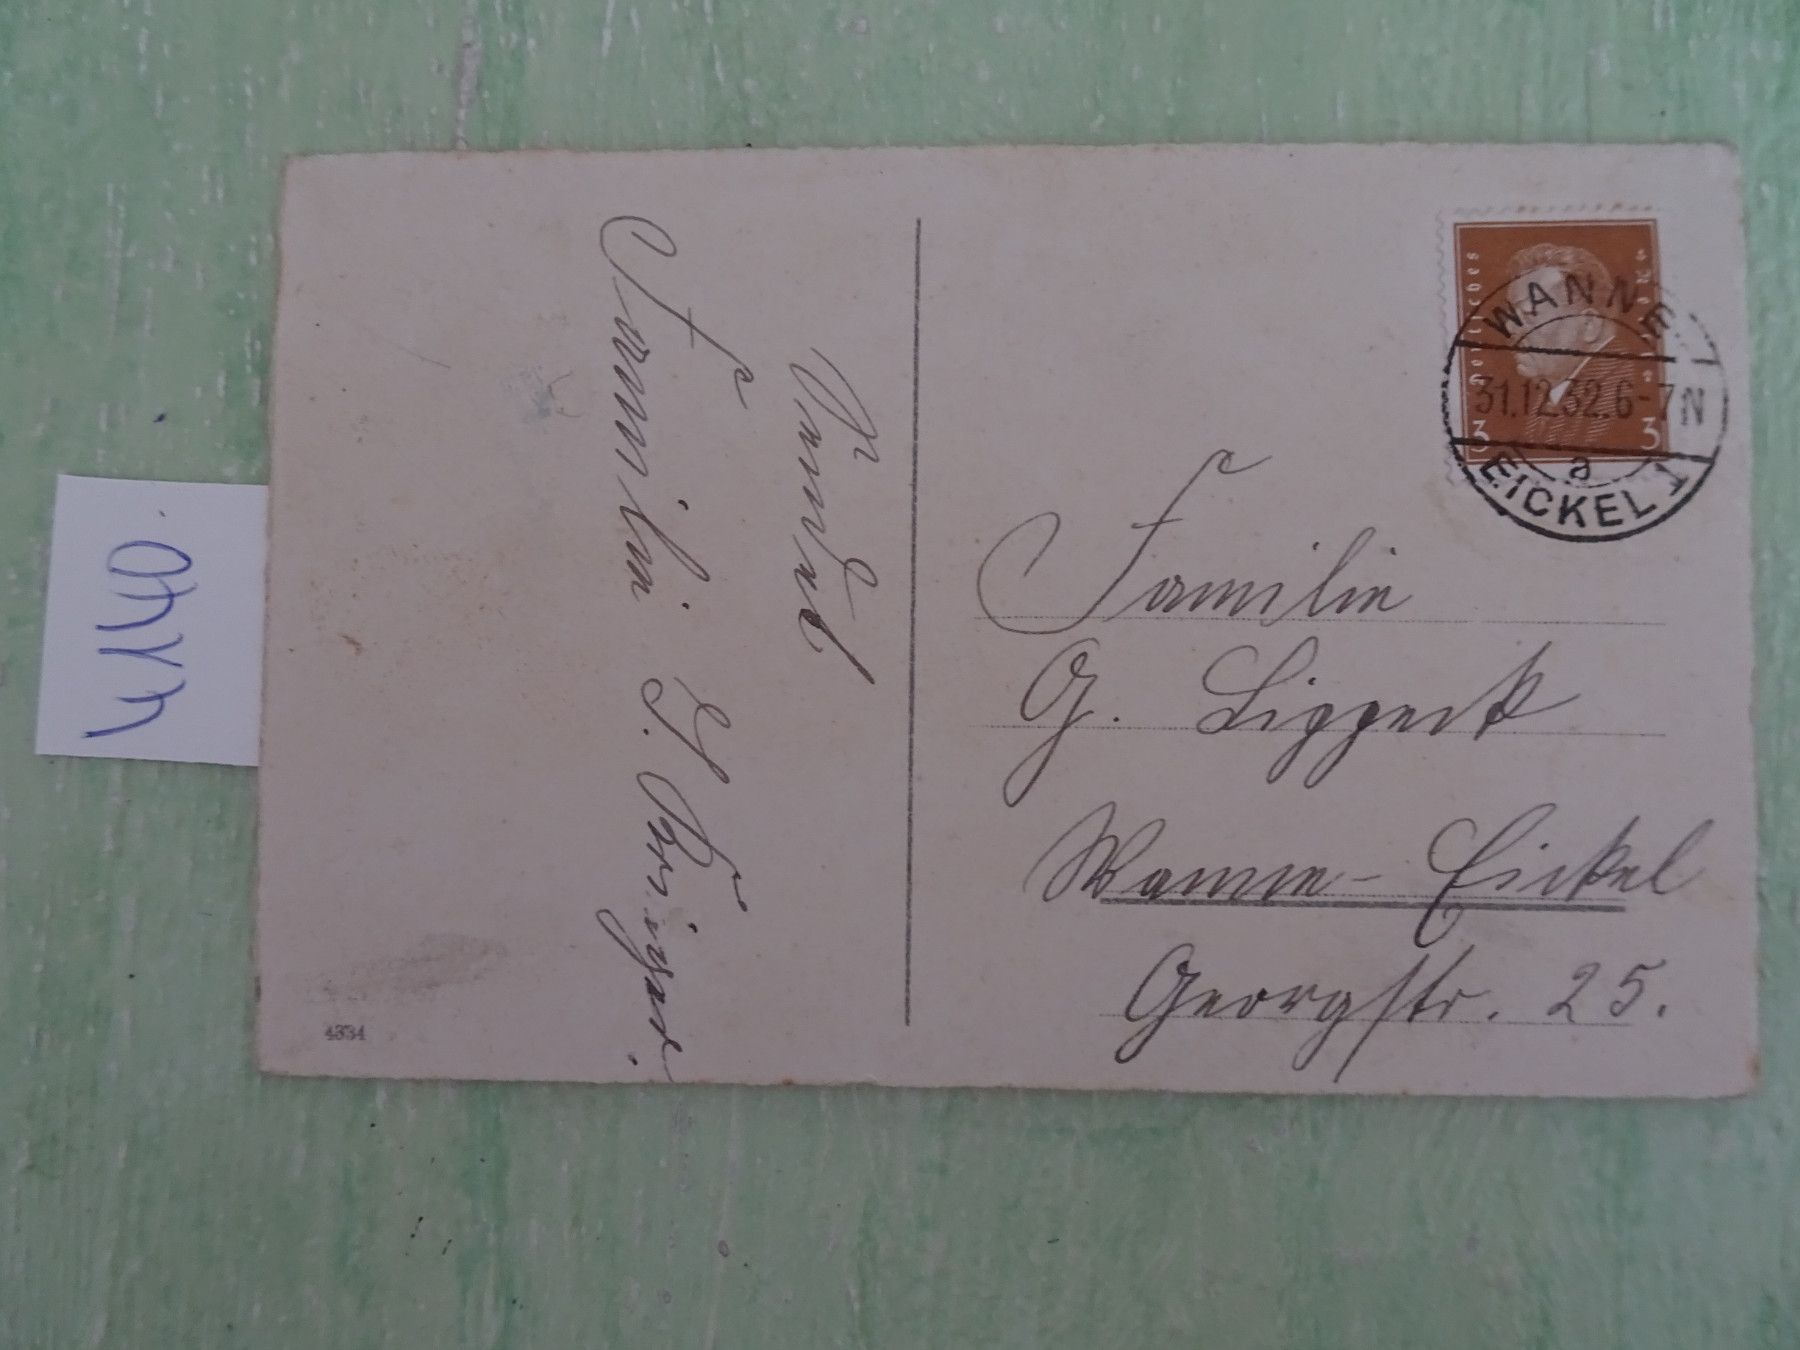 4140.
Familie
4334
Deutsches Reich
3 3
WANNE-
31.12.32.6-7N
a
EICKEL 1
Familie
G.
Wanne-Eickel
Georgstr. 25.